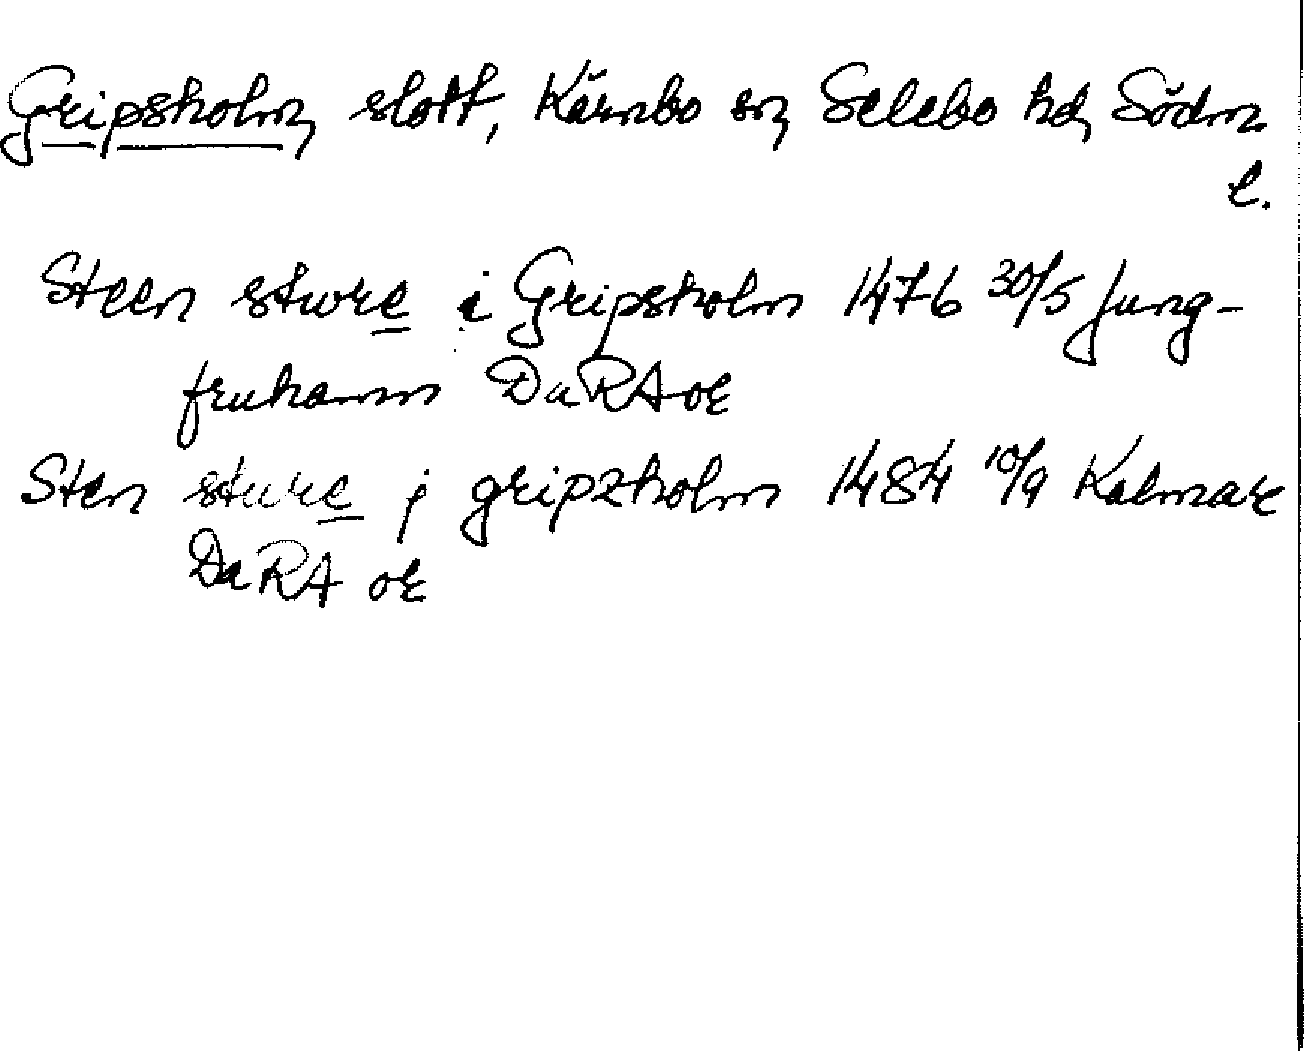 Gripsholm, slott, Kärnbo sn, Selebo hd, Södm.
l.
Steen sture i Gripsholm 1476 30/5 Jung-
fruhamn DaRA or
Sten sture j gripzholm 1484 10/9 Kalmar
DaRA or